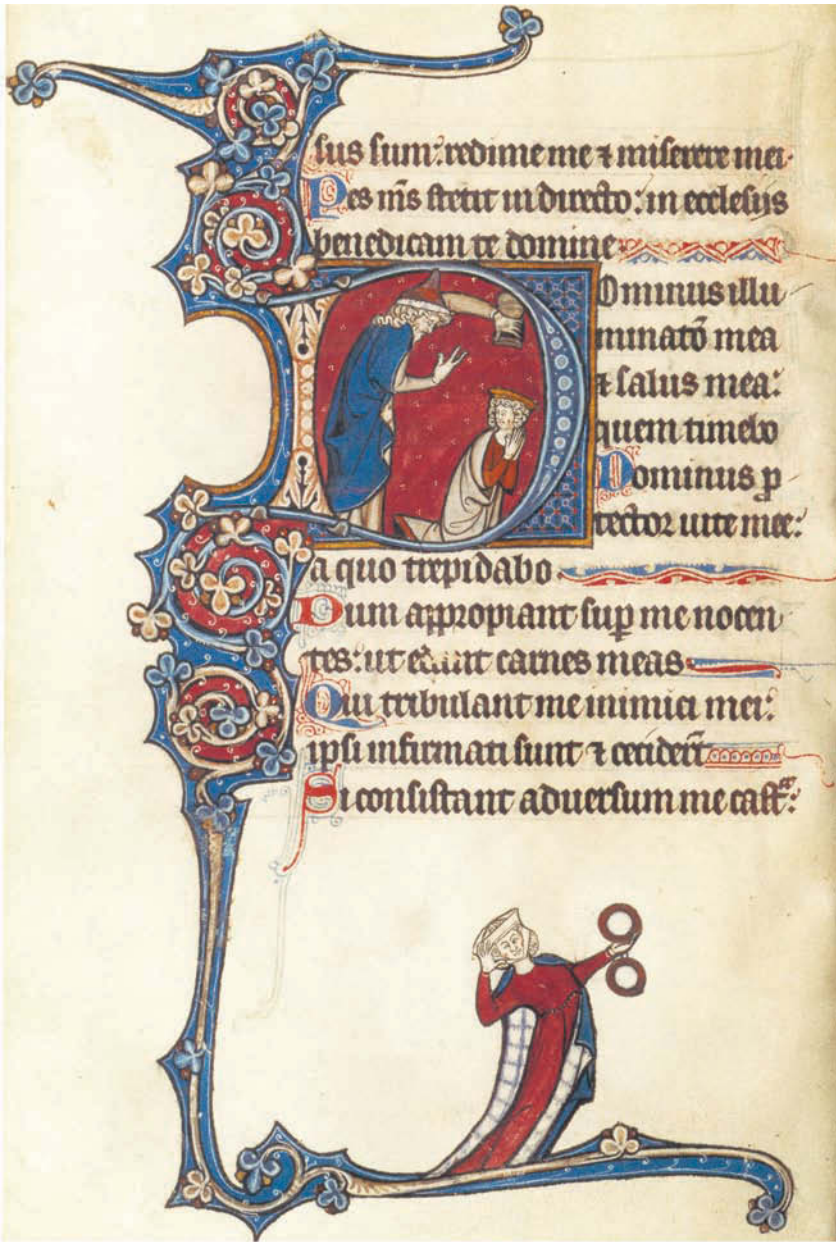 sus sum: redime me ⁊ miserere mei·
Pes m̄s stetit in directo: in ecclesijs
benedicam te domine·
Dominus illu
minatō mea
⁊ salus mea:
quem timebo
Dominus p̄
tector uite mee:
a quo trepidabo·
Dum appropiant sup̄ me nocen
tes: ut edant carnes meas·
Qui tribulant me inimici mei:
ipsi infirmati sunt ⁊ cecider̄t
Si consistant aduersum me castͬa: